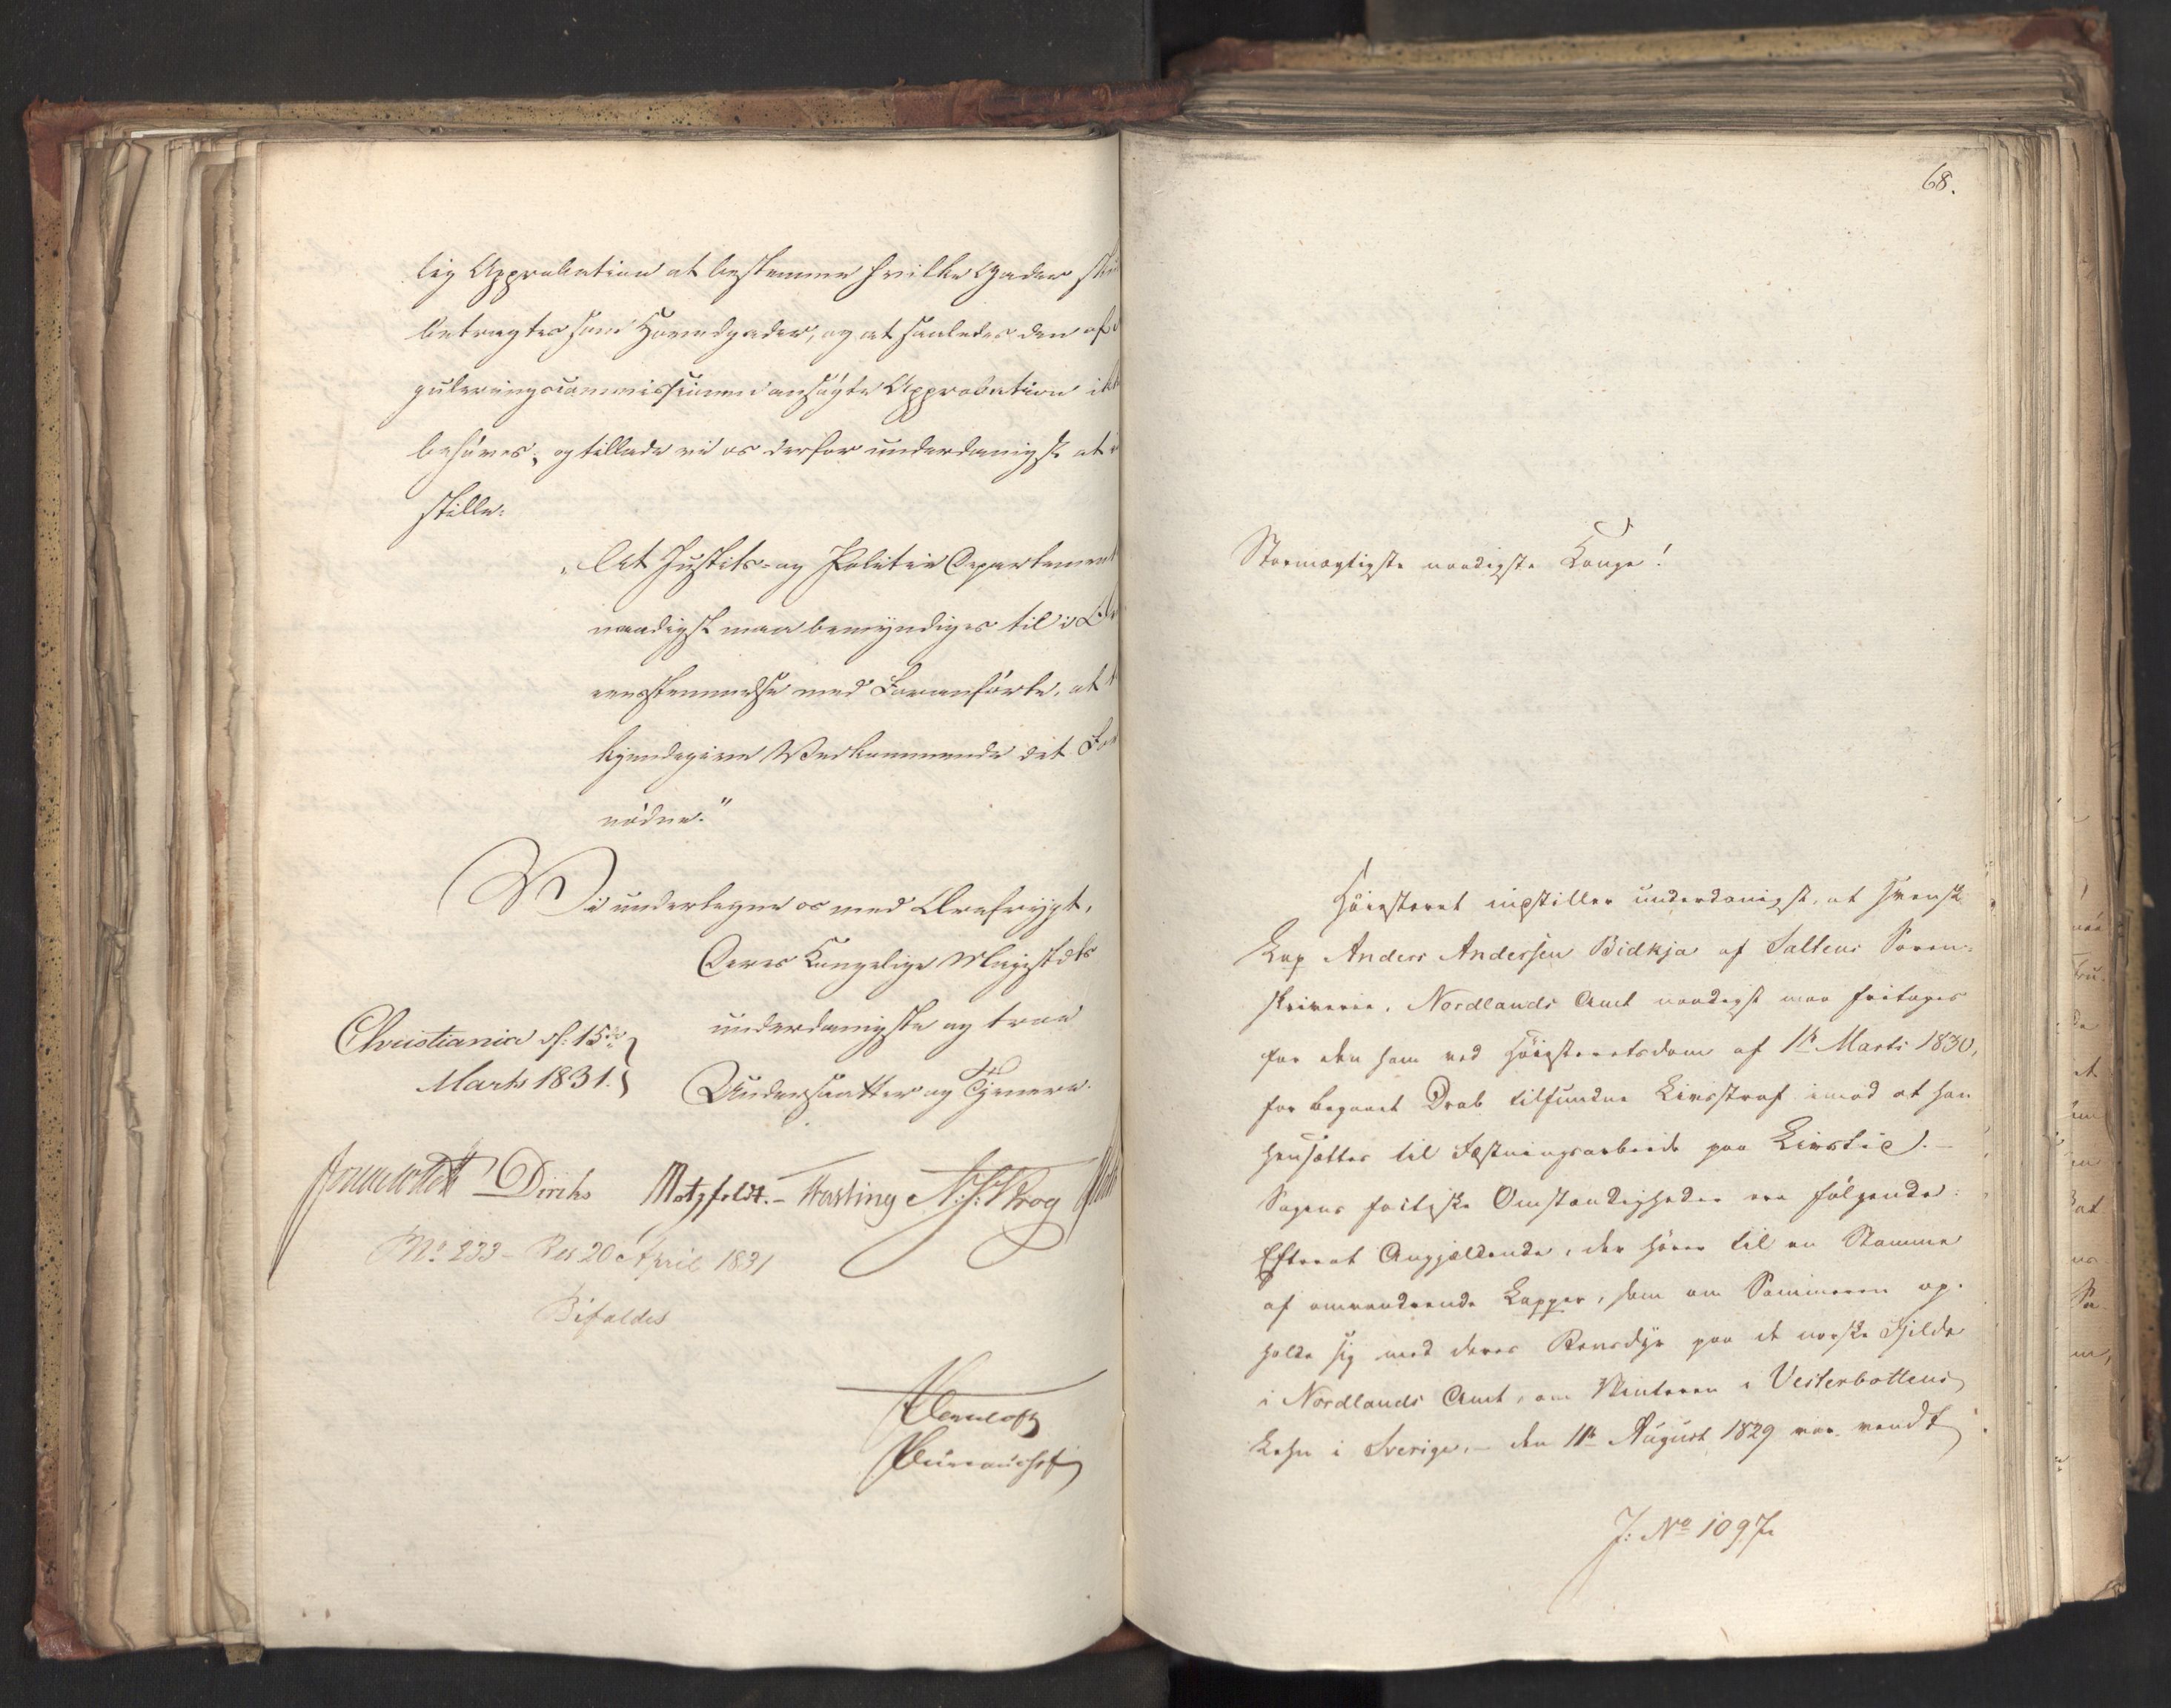 lig Approbation at bestemme hvilke Gader
betragtes som Hovedgader, og at saaledes den af
guleringscommissionen ansøgte Approbation ikk
behøves; og tillade vi os derfor underdanigst at
stille:
"At Justits- og Politie Departement
naadigst maa bemyndiges til i
eensstemmelse med Foranførte, at
kjendegive Vedkommende det For
nødne."
Vi undertegne os med Ærefrygt,
Deres Kongelige Majestæts
underdanigste og troe
Undersaatter og Tjenere.
Christiania d: 15de
Marts 1831.
Diriks Motzfeldt. - Fasting N. J. Krog
No 233 - Res 20 April 1831
Bifaldes
Bureauchef
68.
Stormægtigste naadigste Konge!
Høiesteret indstiller underdanigst, at svensk
Lap Anders Andersen Bidkja af Saltens Soren-
skriverie, Nordlands Amt naadigst maa fritages
for den ham ved Høiesteretsdom af 1ste Marts 1830,
for begaaet Drab tilfundne Livsstraf imod at han
hensættes til Fæstningsarbeide paa Livstid. -
Sagens factiske Omstændigheder ere følgende:
Efterat Angjældende, der hører til en Stamme
af omvandrende Lapper, som om Sommeren op-
holde sig med deres Rensdyr paa de norske Fjelde
i Nordlands Amt, om Vinteren i Vesterbottens
Lehn i Sverige, - den 11te August 1829 var vendt
J: No 1097.